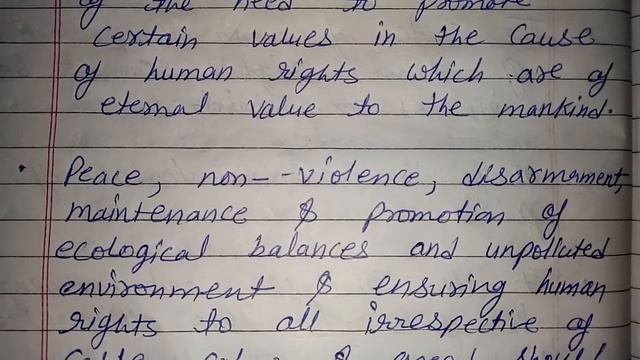 of the need to promote
certain values in the Cause
of human rights which are of
eternal value to the mankind.
• Peace, non--violence, disarmament,
maintenance & promotion of
ecological balances and unpolluted
environment & ensuring human
rights to all irrespective of